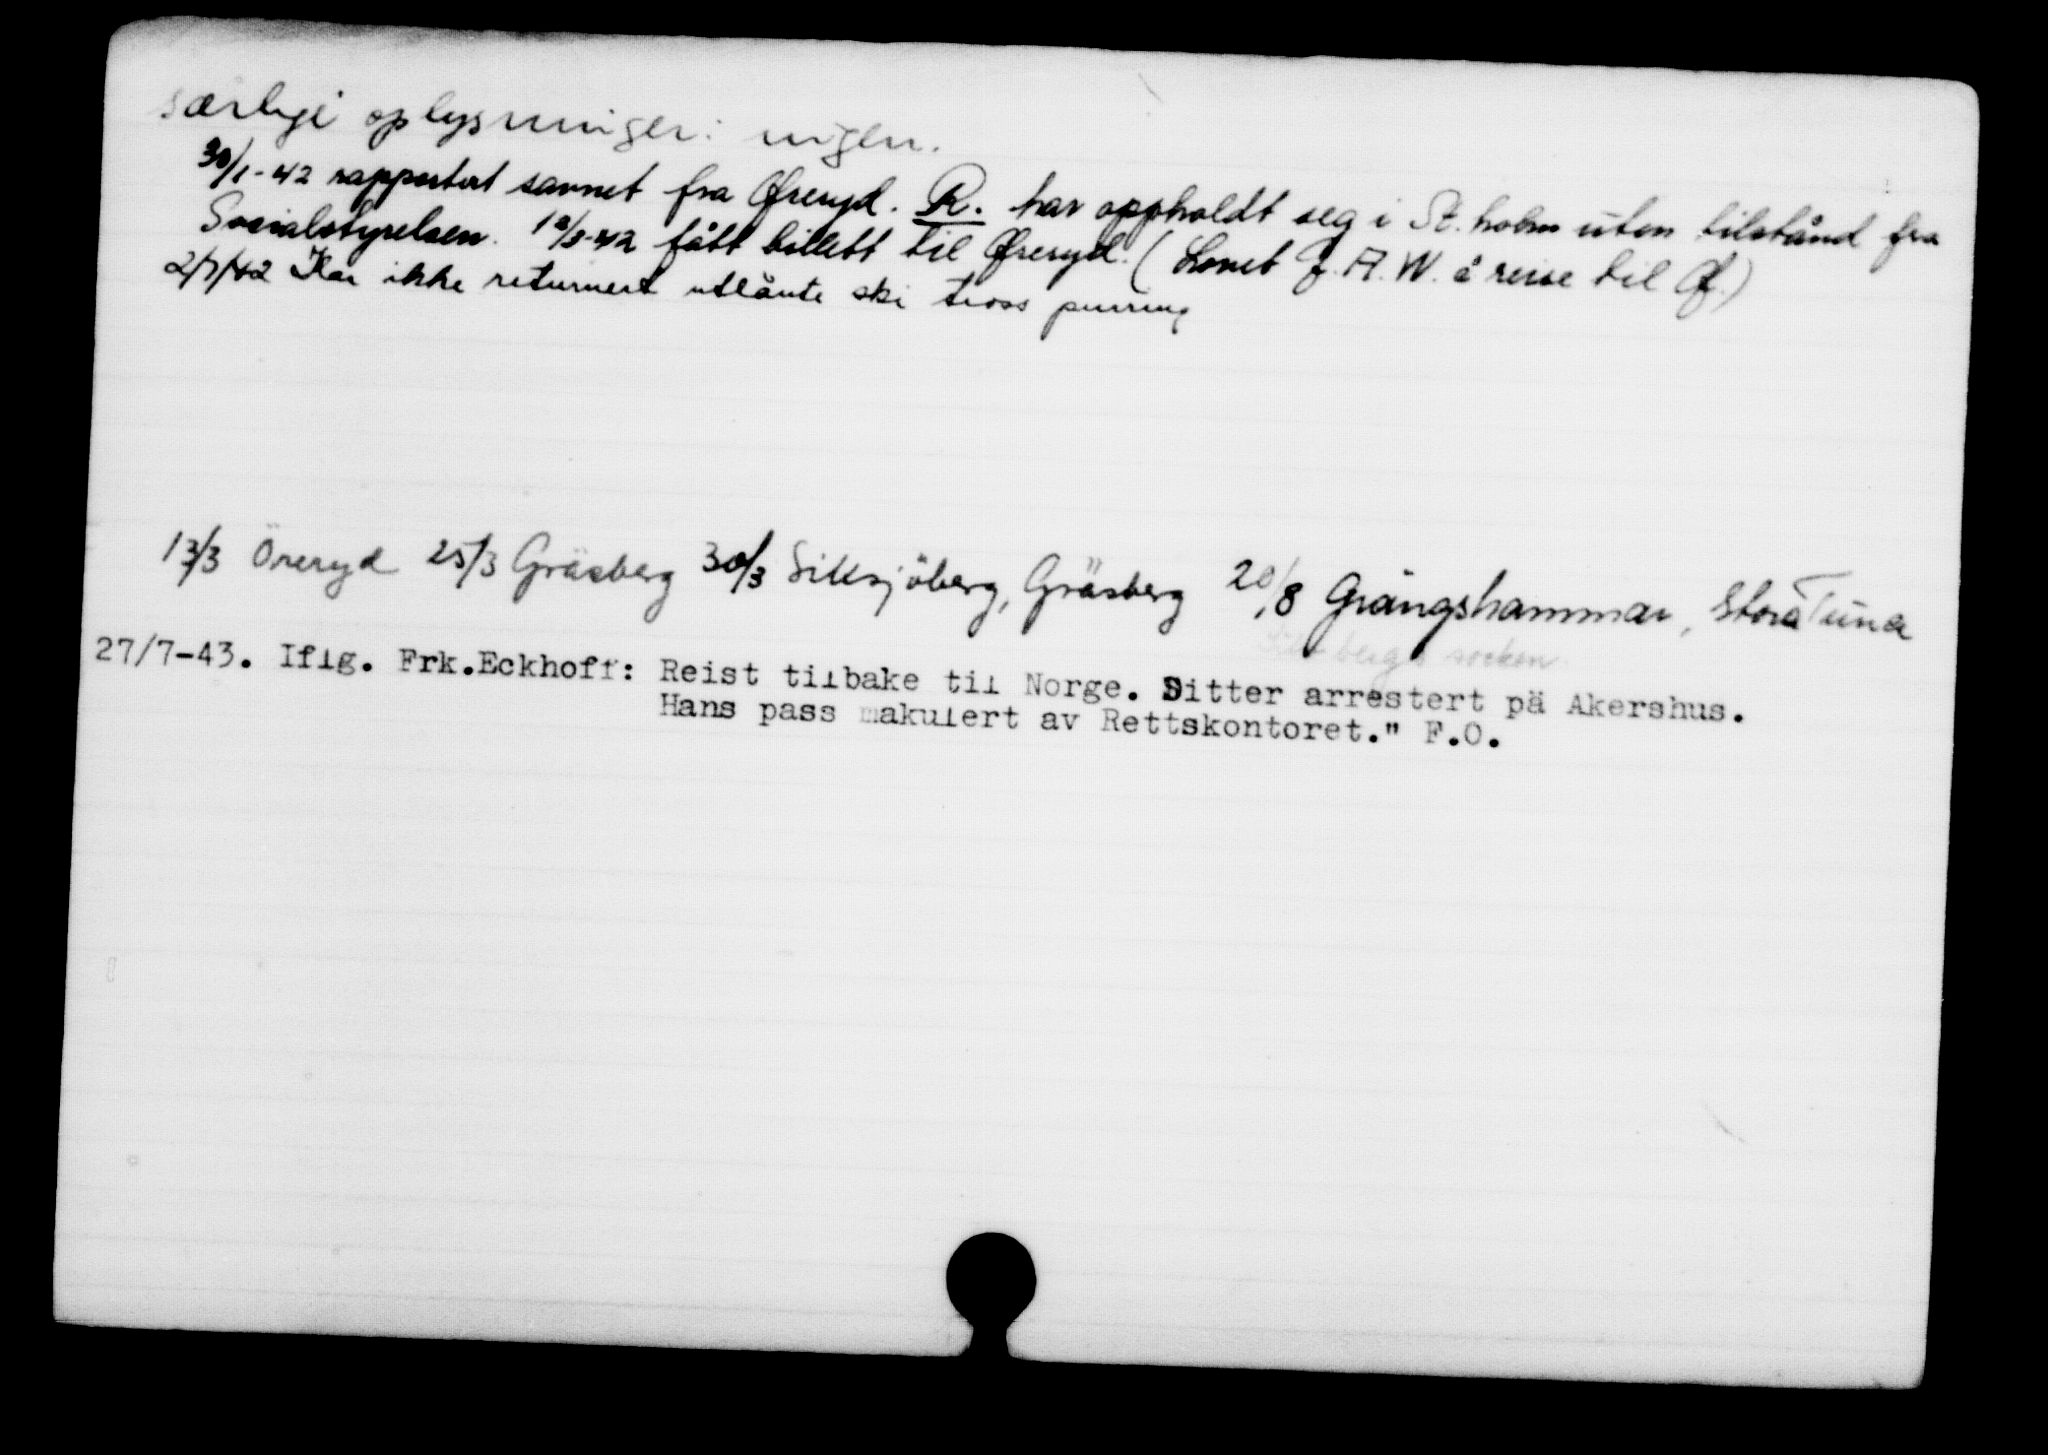 særlige oplysninger: ingen.
30/1-42 rapportert savnet fra Øreryd. R. har oppholdt seg i St.holm uten tilstånd fra
Socialstyrelsen. 12/3-42 fått billett til Øreryd. (Lovet J. A. W. å reise til Ø.)
2/7/42 Har ikke returnert utlånte ski tross purring
13/3 Öreryd 25/3 Gräsberg 30/3 Siksjöberg, Gräsberg 20/8 Grängshammar, Stora Tuna
socken
27/7-43. Iflg. Frk.Eckhoff: Reist tilbake til Norge. Sitter arrestert pä Akershus.
Hans pass makulert av Rettskontoret." F.O.